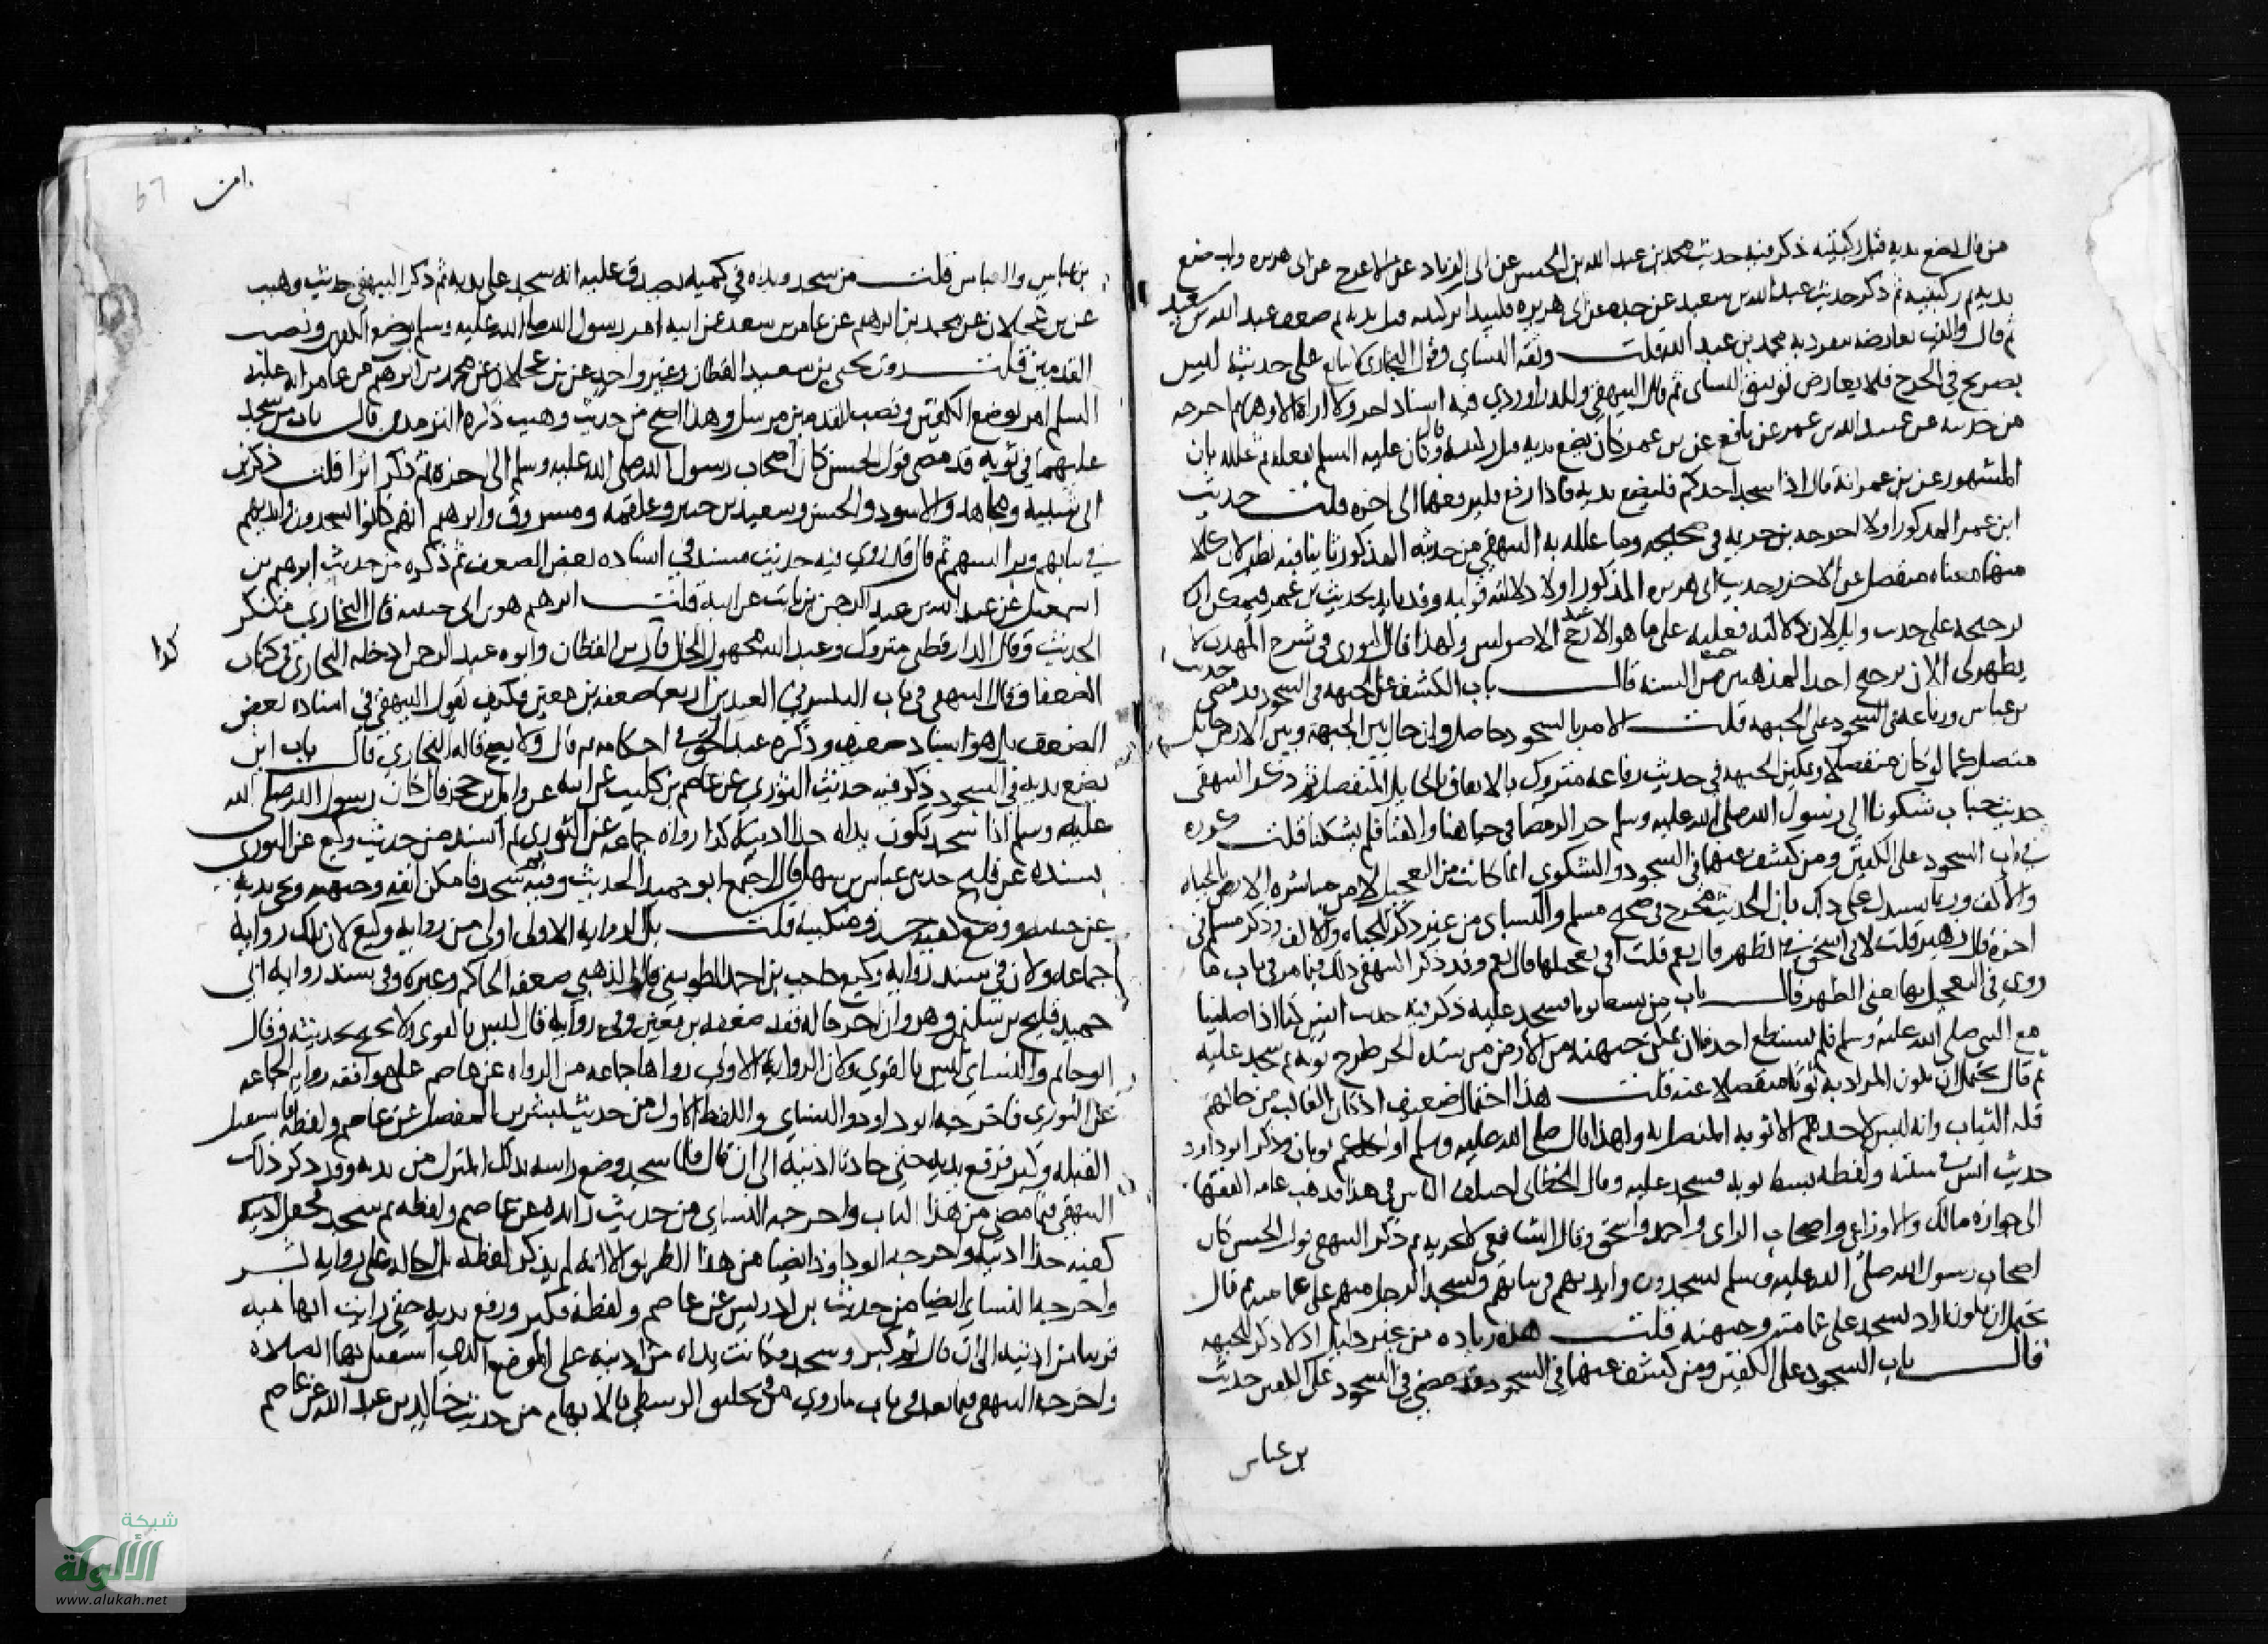 من قال يضع يديه قبل ركبتيه ذكر فيه حديث محمد بن عبد الله بن الحسن عن ابى الزناد عن الاعرج عن ابى هريرة وليضع
يديه ثم ركبتيه ثم ذكر حديث عبد الله بن سعيد عن جده عن ابى هريرة فليبدا بركبتيه قبل يديه ثم ضعف عبد الله بن سعيد
ثم قال والذى يعارضه يتفرد به محمد بن عبد الله قلت وثقه النساى وقول البخارى لا يتابع على حديثه ليس
بصريح فى الجرح فلا يعارض توثيق النساى ثم قال البيهقى وللدراوردي فيه اسناد اخر ولا اراه الا وهما ثم اخرجه
من حديثه عن عبيد الله بن عمر عن نافع عن بن عمر كان يضع يديه قبل ركبتيه قال وكان عليه السلم يفعله ثم علله بان
المشهور عن بن عمر انه قال اذا سجد احدكم فليضع يديه فاذا رفع فليرفعهما الى اخره قلت حديث
ابن عمر المذكور اولا اخرجه بن خزيمة فى صحيحه وما علله به البيهقى من حديثه المذكور ثانيا فيه نظر لان كلا
منهما معناه منفصل عن الاخر وحديث ابى هريرة المذكور اولا دلالته قوليه وقد تايد بحديث بن عمر فيمكن
ترجيحه على حديث وايل لان دلالته فعليه على ما هو الارجح عند الاصوليين ولهذا قال النووى فى شرح المهذب لا
يظهر لى الان ترجيح احد المذهبين من حيث السنه قال باب الكشف عن الجبهه فى السجود قد مضى حديث
بن عباس ورفاعه فى السجود على الجبهه قلت الامر بالسجود حاصل وان حال بين الجبهة وبين الارض حايل
متصل كما لو كان منفصلا وتمكين الجبهه فى حديث رفاعه متروك بالاتفاق بالحايل المنفصل ثم ذكر البيهقى
حديث خباب شكونا الى رسول الله صلى الله عليه وسلم حر الرمضا فى جباهنا واكفنا فلم يشكنا قلت وذكره
فى باب السجود على الكفين ومن كشف عنهما فى السجود والشكوى انما كانت من التعجيل لا من مباشرة الارض بالجباه
والاكف وربما يستدل على ذلك بان الحديث مخرج فى صحيح مسلم والنساى من غير ذكر الجباه والاكف وذكر مسلم فى
اخره قال زهير قلت لابى اسحق فى الظهر قال نعم قلت افى تعجيلها قال نعم وقد ذكر البيهقى ذلك فيما مر فى باب ما
روى فى التعجيل بها يعنى الظهر قال باب من بسط ثوبا فسجد عليه ذكر فيه حديث انس كنا اذا صلينا
مع النبى صلى الله عليه وسلم فلم يستطع احدنا ان يمكن جبهته من الارض من شدة الحر طرح ثوبه ثم سجد عليه
ثم قال يحتمل ان يكون المراد به ثوبا منفصلا عنه قلت هذا احتمال ضعيف اذ كان الغالب من حالهم
قله الثياب وانه ليس لاحدهم الا ثوبه المتصل به ولهذا قال صلى الله عليه وسلم او لكلكم ثوبان وذكر ابو داود
حديث انس فى سننه ولفظه بسط ثوبه فسجد عليه وقال الخطابى اختلف الناس فى هذا فذهب عامه الفقها
الى جوازه مالك والاوزاعى واصحاب الراى واحمد واسحق وقال الشافعى لا يجزيه ثم ذكر البيهقى قول الحسن كان
اصحاب رسول الله صلى الله عليه وسلم يسجدون وايديهم فى ثيابهم ويسجد الرجل منهم على عمامته ثم قال
يحتمل ان يكون اراد يسجد على عمامته وجبهته قلت هذه زياده من غير دليل اذ لا ذكر للجبهه
قال باب السجود على الكفين ومن كشف عنهما فى السجود قد مضى فى السجود على الكفين حديث
بن عباس
67
بن عباس والعباس قلت من سجد ويداه فى كميه يصدق عليه انه سجد على يديه ثم ذكر البيهقى حديث وهيب
عن بن عجلان عن محمد بن ابرهيم عن عامر بن سعد عن ابيه امر رسول الله صلى الله عليه وسلم بوضع الكفين ونصب
القدمين قلت روى يحيى بن سعيد القطان وغير واحد عن بن عجلان عن محمد بن ابرهيم عن عامر انه عليه
السلم امر بوضع الكفين ونصب القدمين مرسل وهذا اصح من حديث وهيب ذكره الترمذى قال باب من سجد
عليهما فى ثوبه قد مضى قول الحسن كان اصحاب رسول الله صلى الله عليه وسلم الى اخره ثم ذكر اثرا قلت ذكر بن
ابى شيبة ومجاهد والاسود والحسن وسعيد بن جبير وعلقمه ومسروق وابرهيم انهم كانوا يسجدون وايديهم
فى ثيابهم وبرانسهم ثم قال وقد روي فيه حديث مسند فى اسناده بعض الضعف ثم ذكره من حديث ابرهيم بن
اسمعيل عن عبد الله بن عبد الرحمن بن ثابت عن ابيه قلت ابرهيم هو بن ابى حبيبه قال البخارى منكر
الحديث وقال الدارقطنى متروك وعبد الله مجهول الحال قاله بن القطان وابوه عبد الرحمن ادخله البخارى فى كتاب
كذا
الضعفا وقال البيهقى فى باب
الضعف بل هو اسناد ضعيف وذكره عبد الحق فى احكامه ثم قال ولا يصح قاله البخارى قال باب اين
يضع يديه فى السجود ذكر فيه حديث الثوري عن عاصم بن كليب عن ابيه عن وايل بن حجر قال كان رسول الله صلى الله
عليه وسلم اذا سجد تكون يداه حذا اذنيه كذا رواه جماعه عن الثورى ثم اسند من حديث وكيع عن الثورى
بسنده عن فليح حدثنى عباس بن سهل قال اجتمع ابو حميد الحديث وفيه ثم سجد فامكن انفه وجبهته ونحى يديه
عن جنبيه ووضع كفيه حذو منكبيه قلت بل الروايه الاولى اولى من روايه وكيع لان تلك روايه
جماعه ولان فى سند روايه وكيع حاجب بن احمد الطوسى قال الذهبى ضعفه الحاكم وغيره وفى سند روايه ابى
حميد فليح بن سليمن وهو وان اخرجا له فقد ضعفه بن معين وفى روايه قال ليس بالقوى ولا يحتج بحديثه وقال
ابو حاتم والنساى ليس بالقوى ولان الروايه الاولى رواها جماعه من الرواه عن عاصم على موافقه روايه الجماعه
عن الثورى فاخرجه ابو داود والنساى واللفظ الاول من حديث بشر بن المفضل عن عاصم ولفظه فاستقبل
القبله وكبر فرفع يديه حتى حاذتا اذنيه الى ان قال فلما سجد وضع راسه بذلك المنزل من يديه وقد ذكر ذلك
البيهقى فيما مضى من هذا الباب واخرجه النساى من حديث زائدة عن عاصم ولفظه ثم سجد فجعل كفيه
كفيه حذا اذنيه واخرجه ابو داود ايضا من هذا الطريق الا انه لم يذكر لفظه بل احاله على روايه بشر
واخرجه النساى ايضا من حديث بن ادريس عن عاصم ولفظه فكبر ورفع يديه حتى رايت ابهاميه
قريبا من اذنيه الى ان قال ثم كبر وسجد وكانت يداه من اذنيه على الموضع الذى استقبل بهما الصلاة
واخرجه البيهقى فيما بعد فى باب ما روي فى تحليق الوسطى بالابهام من حديث خالد بن عبد الله عن عاصم
شبكة
الألوكة
www.alukah.net